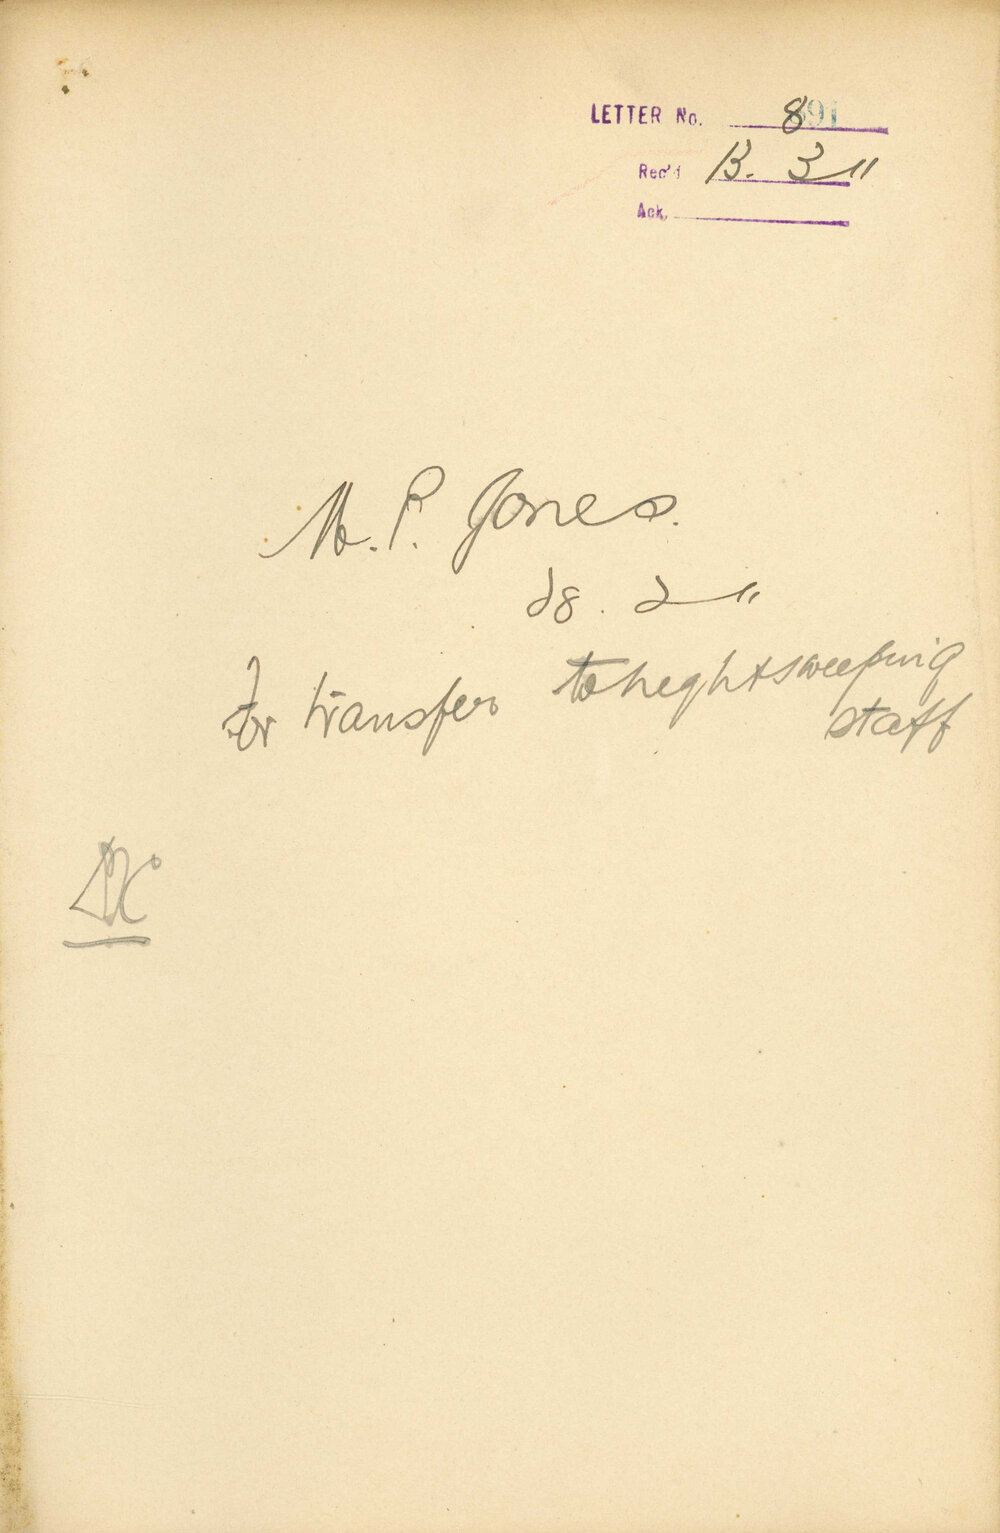 LETTER No. 891
Rec'd 13. 3 11
Ack.
M. P. Jones.
28. 2 11
For transfer to neghtsweeping
staff